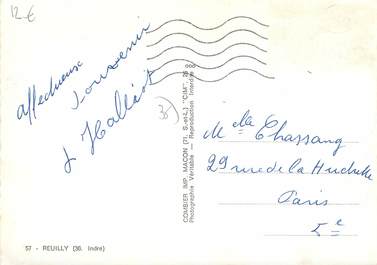 12 €
affectueux
souvenir
J Halléot
36)
COMBIER IMP. MACON (71. S.-et-L.) "CIM" 26 000
Photographie Véritable — Reproduction Interdite
Mme de Chassang
29 rue de la Huchette
Paris
5e
57 - REUILLY (36. Indre)